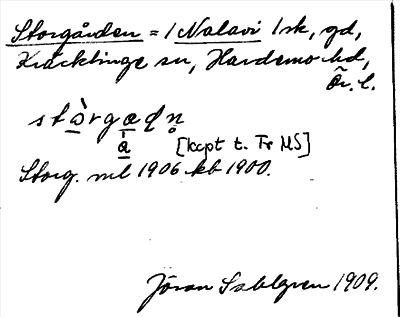 Storgården = 1 Nalavi 1 sk, gd,
Kräcklinge sn, Hardemo hd,
Ör. l.
stò̱rgæḍṇ
a
[kopt t. Fr MS]
Storg. ml 1906 kb 1900.
Jöran Sahlgren 1909.